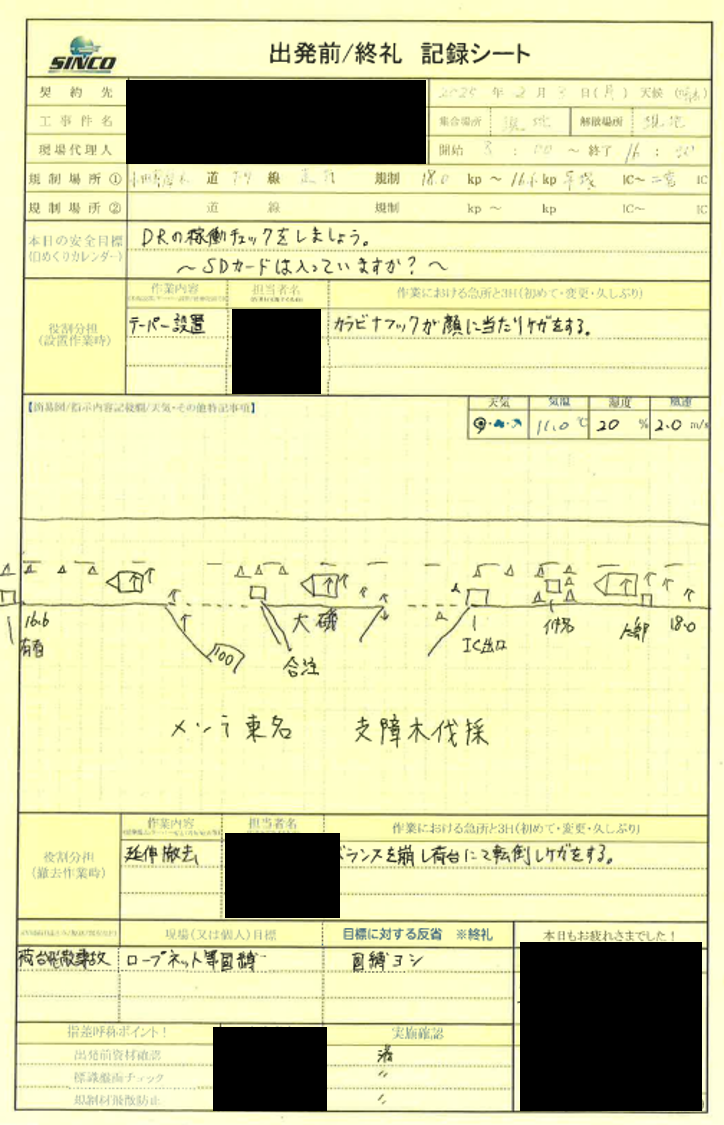 SINCO
出発前/終礼 記録シート
契約先 2025年2月3日(月) 天候(晴れ)
工事件名 集合場所 現地 解散場所 現地
現場代理人 開始 8:00 ~ 終了 16:30
規制場所① 道 下り 線 規制 18.0 kp ~ 16.6 kp 平塚 IC~二宮 IC
規制場所② 道 線 規制 kp ~ kp IC~ IC
本日の安全目標 DRの稼働チェックをしましょう。
(日めくりカレンダー) ~SDカードは入っていますか?~
作業内容 担当者名 作業における急所と3H(初めて・変更・久しぶり)
役割分担 テーパー設置 カラビナフックが顔に当たりケガをする。
(設置作業時)
【簡易図/指示内容記載欄/天気・その他特記事項】
天気 気温 湿度 風速
11.0℃ 20% 2.0 m/s
16.6 大磯 IC出口 18.0
100 合流
メンテ東名 支障木伐採
作業内容 担当者名 作業における急所と3H(初めて・変更・久しぶり)
役割分担 延伸撤去 バランスを崩し荷台にて転倒しケガをする。
(撤去作業時)
現場(又は個人)目標 目標に対する反省 ※終礼 本日もお疲れさまでした!
荷台飛散事故 ロープネット等固縛 固縛ヨシ
指差呼称ポイント! 実施確認
出発前資材確認 済
標識盤面チェック 〃
規制材飛散防止 〃